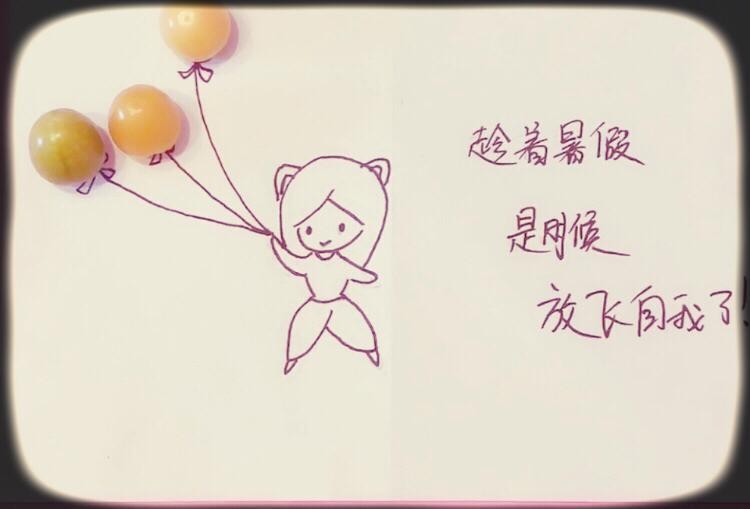 趁着暑假
是时候
放飞自我了!